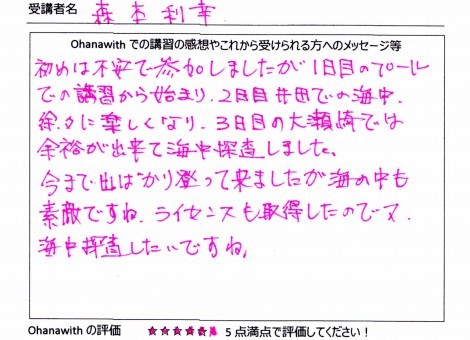 受講者名 森本利幸
Ohanawith での講習の感想やこれから受けられる方へのメッセージ等
初めは不安で参加しましたが1日目のプール
での講習から始まり、2日目井田での海中、
徐々に楽しくなり、3日目の大瀬崎では
余裕が出来て海中探査しました。
今まで山ばかり登って来ましたが海の中も
素敵ですね、ライセンスも取得したので又、
海中探査したいですね。
Ohanawith の評価 ★★★★★ 5 点満点で評価してください！